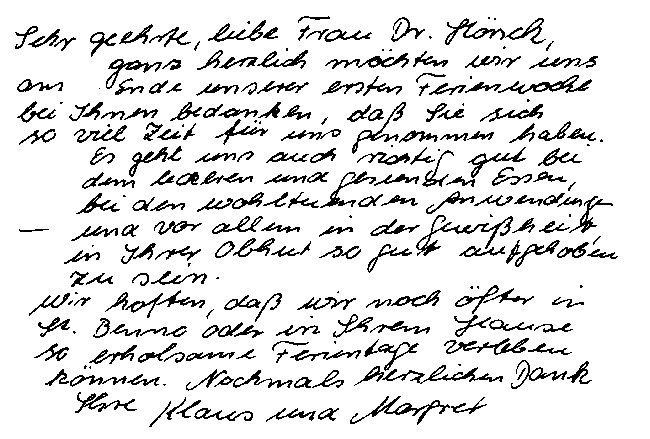 Sehr geehrte, liebe Frau Dr. Hönck,
ganz herzlich möchten wir uns
am Ende unserer ersten Ferienwoche
bei Ihnen bedanken, daß Sie sich
so viel Zeit für uns genommen haben.
Es geht uns auch richtig gut bei
dem leckeren und gesunden Essen,
bei den wohltuenden Anwendungen
– und vor allem in der Gewißheit,
in Ihrer Obhut so gut aufgehoben
zu sein.
Wir hoffen, daß wir noch öfter in
St. Benno oder in Ihrem Hause
so erholsame Ferientage verleben
können. Nochmals herzlichen Dank
Ihre Klaus und Margret